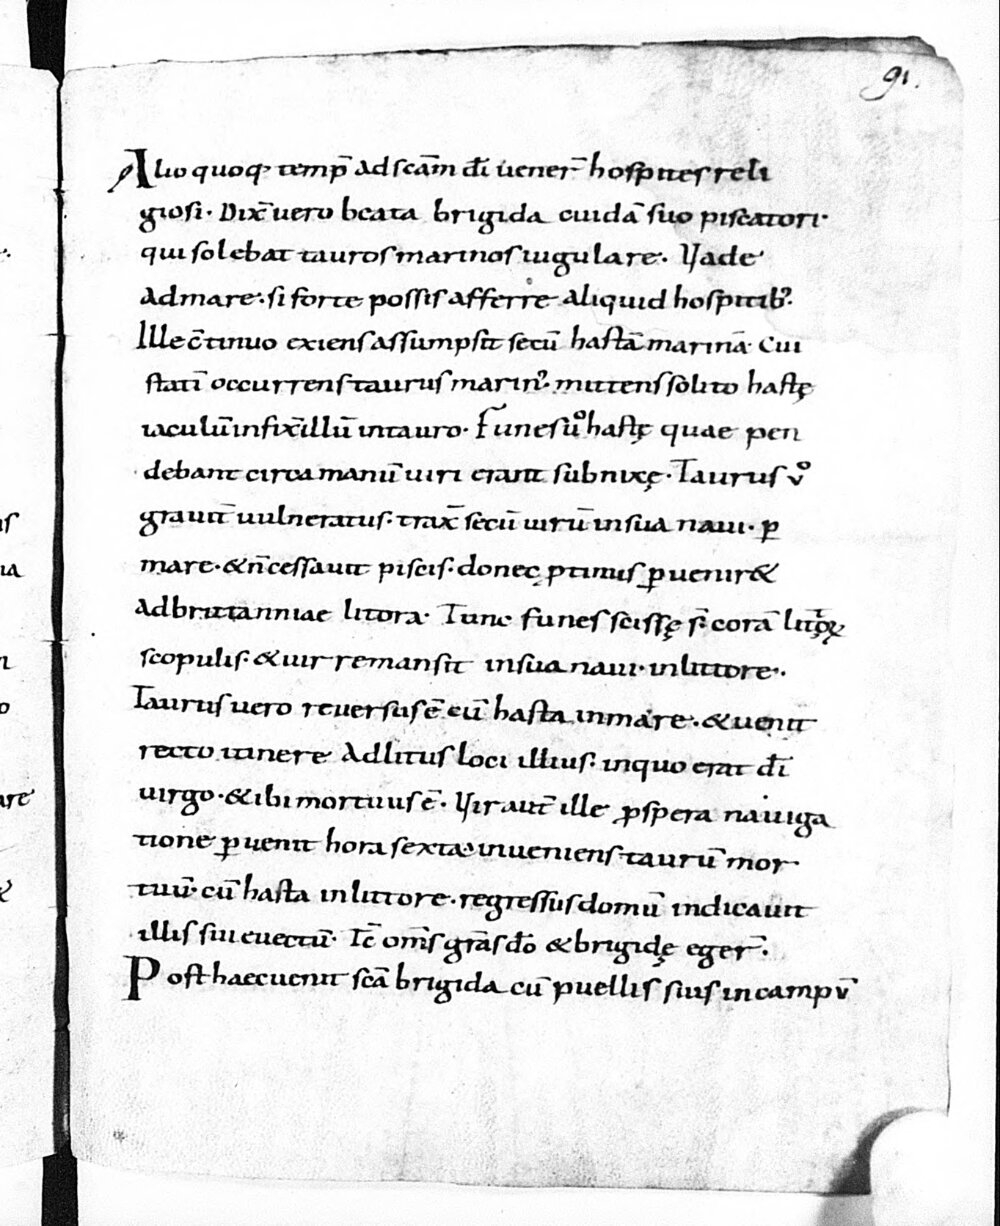 91.
Alio quoq; temp̄ ad scām dī uener̄ hospites reli
giosi. Dix̄ uero beata brigida cuidā suo piscatori.
qui solebat tauros marinos iugulare. Vade
ad mare. si forte possis afferre aliquid hospitib;.
Ille c̄tinuo exiens assumpsit secū hastā marinā. Cui
statī occurrens taurus marin᾿. mittens solito hastę
iaculū infix̄ illū in tauro. Funes ů hastę quae pen
debant circa manū uiri erant subnixę. Taurus v̊
grauit̄ uulneratus. trax̄ secū uirū in sua naui. ꝑ
mare. & n̄ cessauit piscis. donec ꝓtinus ꝑuenir&
ad brittanniae litora. Tunc funes scissę s̄ corā litoꝝ
scopulis. & uir remansit in sua naui. in littore.
Taurus uero reuersus ē cū hasta in mare. & uenit
recto itinere ad litus loci illius. in quo erat dī
uirgo. & ibi mortuus ē. Vir aut̄ ille ꝓspera nauiga
tione ꝑuenit hora sexta. inueniens taurū mor
tuū. cū hasta in littore. regressus domū indicauit
illis sui euectū. Tc̄ om̄s grās dō & brigidę eger̄.
Post haec uenit scā brigida cū puellis suis in campū